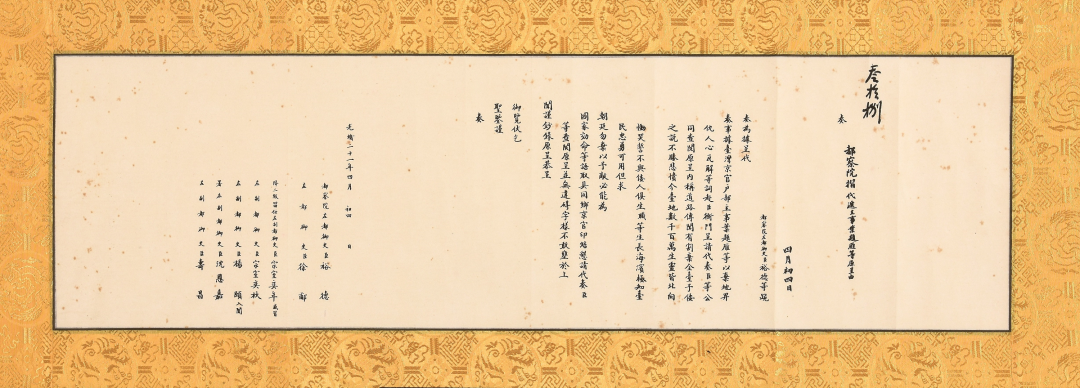 叁拾捌
奏
都察院摺 代遞主事葉題雁等原呈由
四月初四日
都察院左都御史臣裕德等跪
奏為據呈代
奏事據臺灣京官戶部主事葉題雁等以棄地畀
仇人心瓦解等詞赴臣衙門呈請代奏臣等公
同查閱原呈內稱道路傳聞有割棄全臺予倭
之說不勝悲憤今臺地數千百萬生靈皆北向
慟哭誓不與倭人俱生職等生長海濱極知臺
民忠勇可用但求
朝廷勿棄以予敵必能為
國家効命等語取具同鄉京官印結懇請代奏臣
等查閱原呈並無違碍字樣不敢壅於上
聞謹鈔錄原呈恭呈
御覽伏乞
聖鑒謹
奏
光緒二十一年四月 初四 日
都察院左都御史臣裕 德
左都御史臣徐 郙
降二級留任左副都御史臣宗室奕年 感冒
左副都御史臣宗室奕杕
左副都御史臣楊 頤 入闈
署左副都御史臣沈恩嘉
左副都御史臣壽 昌